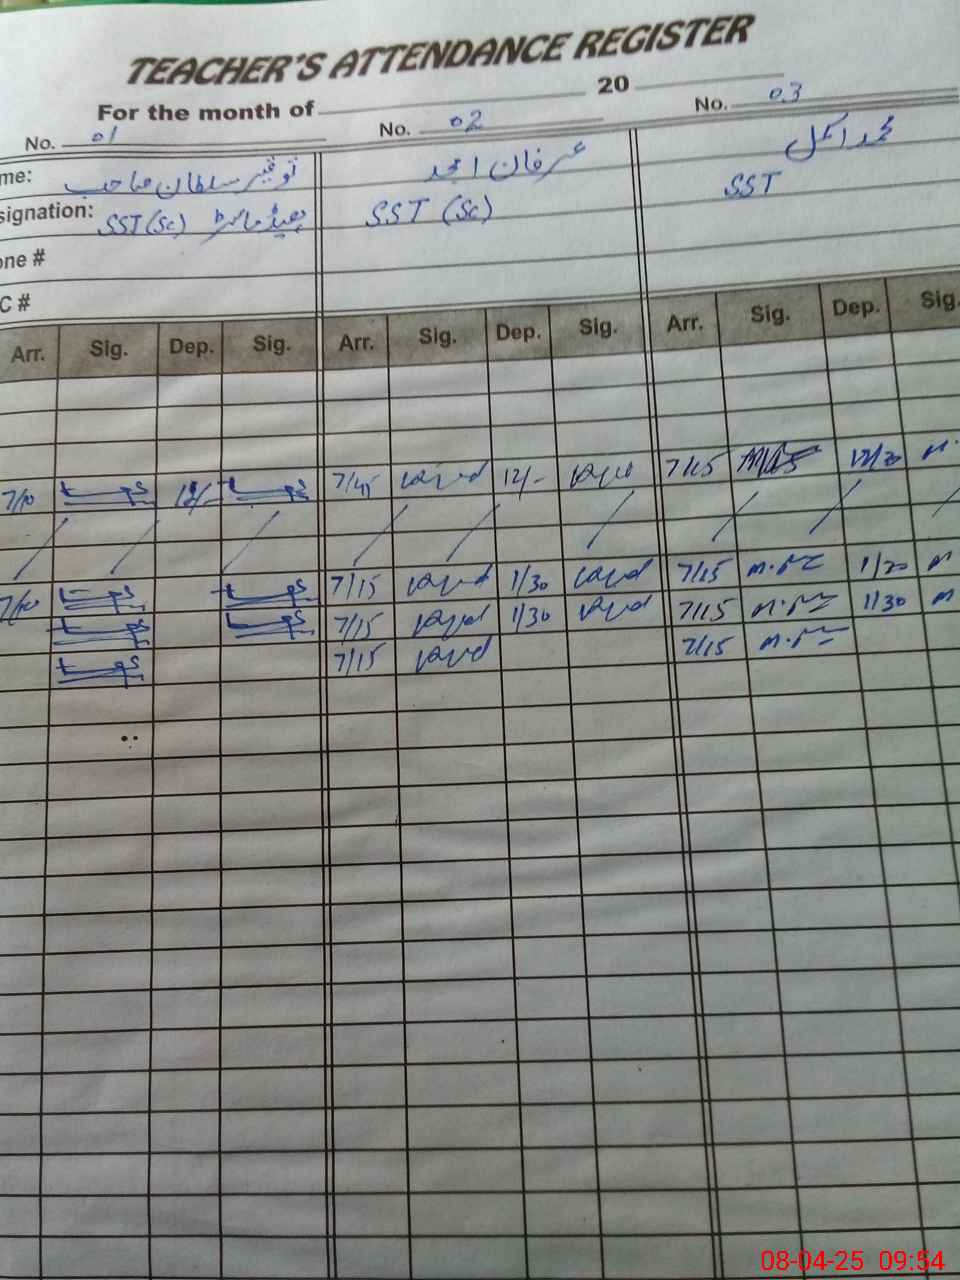 TEACHER'S ATTENDANCE REGISTER
For the month of 20
No. 01 No. 02 No. 03
me: توقیر سلطان صاحب عرفان امجد محمد اکمل
signation: SST (Sc) ہیڈ ماسٹر SST (Sc) SST
one #
C #
Arr. Sig. Dep. Sig. Arr. Sig. Dep. Sig. Arr. Sig. Dep. Sig.
7/10 12/- 7/45 12/- 7/15 12/30
7/15 1/30 7/15 1/30
7/10 7/15 1/30 7/15 1/30
7/15 7/15
08-04-25 09:54